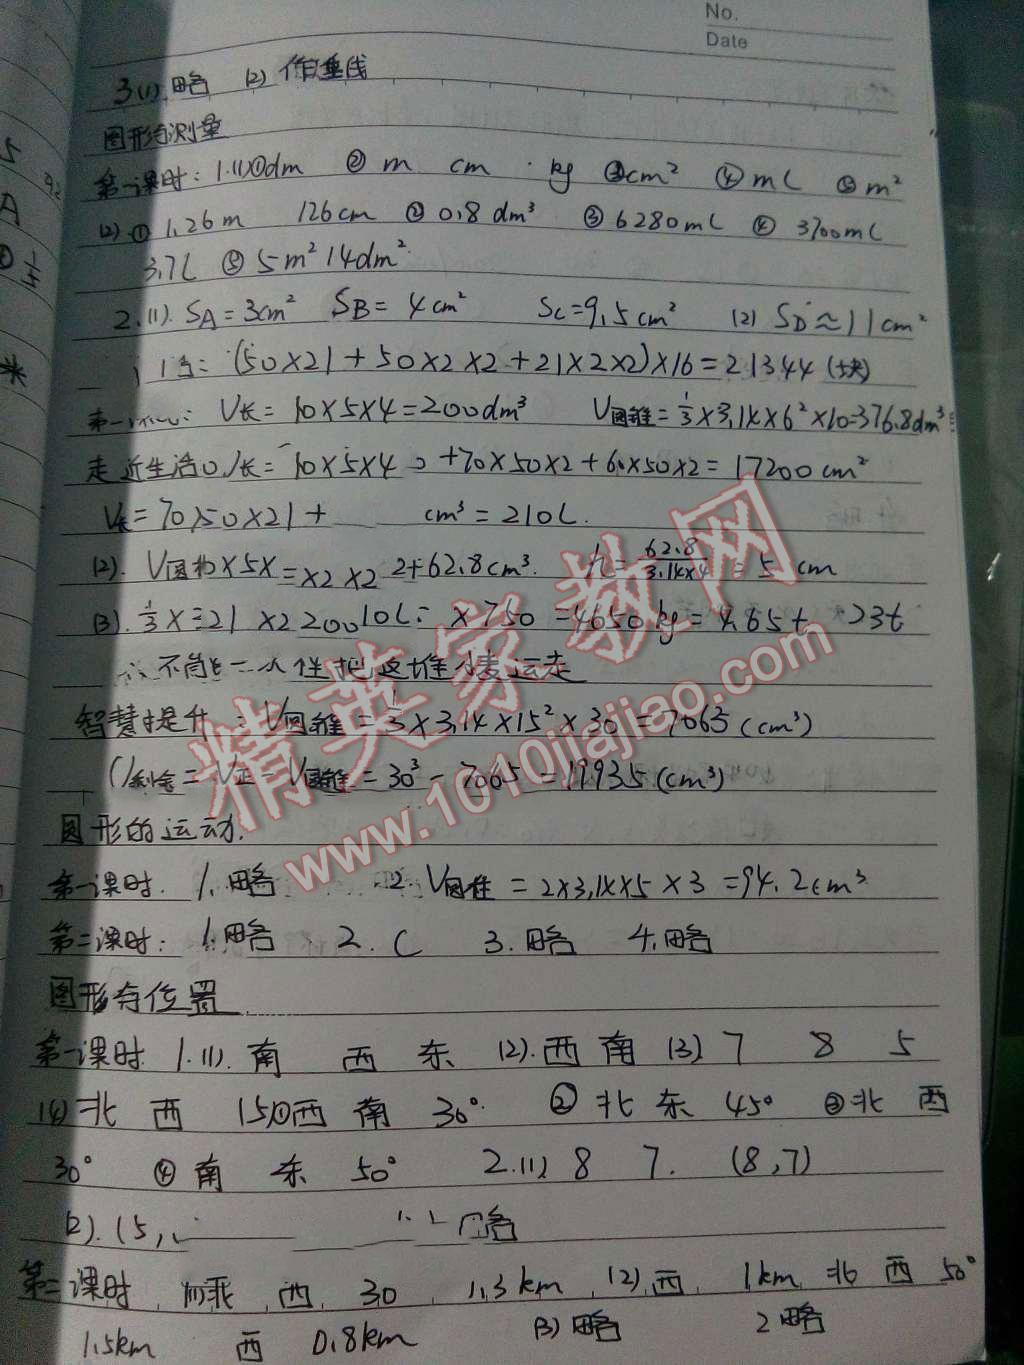 No.
Date
3(1).略 (2) 作垂线
图形与测量
第一课时: 1.(1)①dm ② m cm kg ③cm² ④ mL ⑤ m²
(2) ① 1.26m 126cm ② 0.8dm³ ③ 6280mL ④ 3700mL
3.7L ⑤ 5m² 14dm²
2.(1). SA=3cm² SB=4cm² SC=9.5cm² (2) SD≈11cm²
(50×21+50×2×2+21×2×2)×16=21344(块)
V长=10×5×4=200dm³ V圆锥=1/3×3.14×6²×10=376.8dm³
走近生活 长= 10×5×4 +70×50×2+60×50×2=17200cm²
V长=70×50× 21+ cm³=210L.
(2). V圆 ×5×=×2×2 2+62.8cm³. h=62.8/3.14×4=5cm
(3). 1/3× =21 ×2 200 10L= ×750=4650kg=4.65t 23t
不能一次性把这堆小麦运走
智慧提升: V圆锥=1/3×3.14×15²×30=7065(cm³)
V剩余=V正-V圆锥=30³-7065=19935(cm³)
图形的运动.
第一课时. 1.略 2. V圆柱=2×3.14×5×3=94.2cm³
第二课时: 1.略 2.C 3.略 4.略
图形与位置
第一课时 1.(1).南 西 东 (2).西 南 (3) 7 8 5
(4)北 西 (5)①西 南 30° ②北 东 45° ③北 西
30° ④ 南 东 50° 2.(1) 8 7. (8,7)
(2).(5, 略
第二课时 北 西 30 1.3km (2).西 1km 北 西 50°
1.5km 西 0.8km (3)略 2略
精英家教网
www.1010jiajiao.com